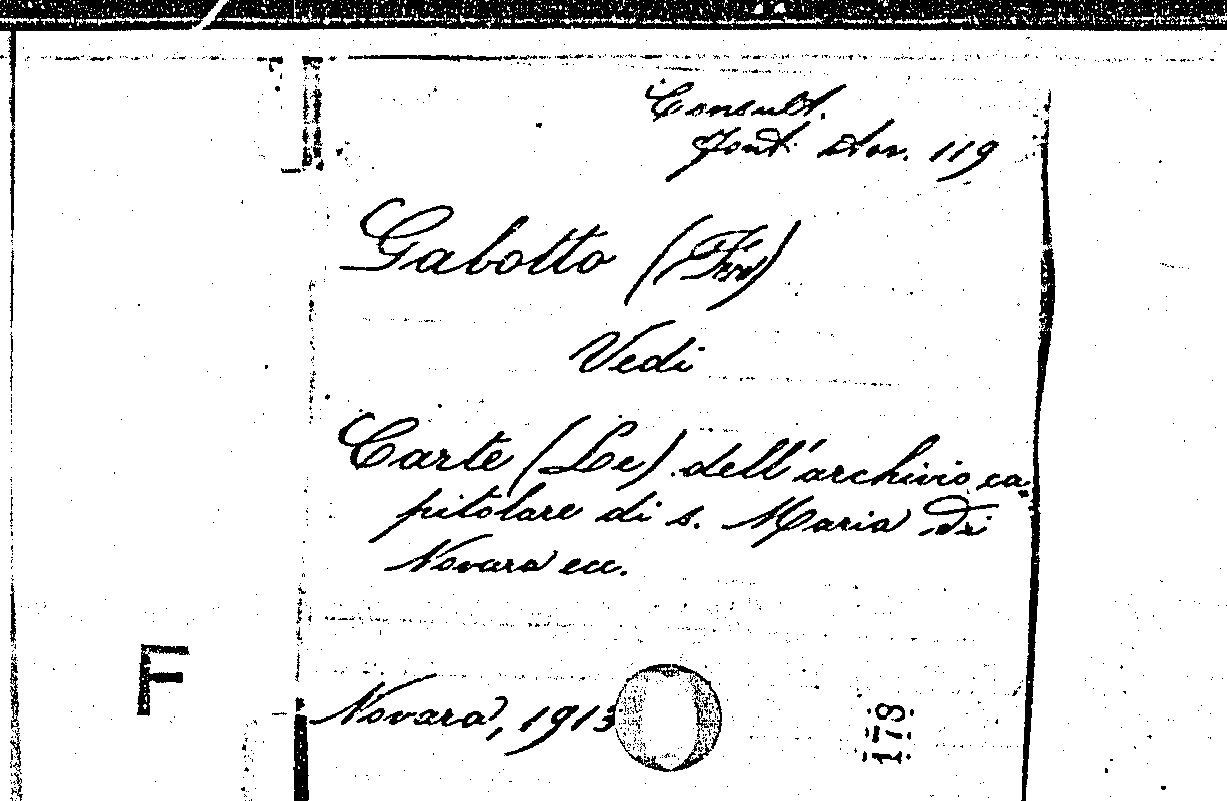 Consult.
Font. Stor. 119
Gabotto (F.)
Vedi
Carte (Le) dell'archivio ca-
pitolare di s. Maria di
Novara ecc.
Novara, 1913
F
178